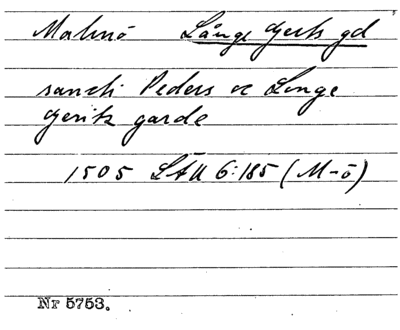 Malmö Långe Gerts gd
sancti Peders oc Longe
Geritz garde
1505 LÄU 6:185 (M-ö)
Nr 5753.